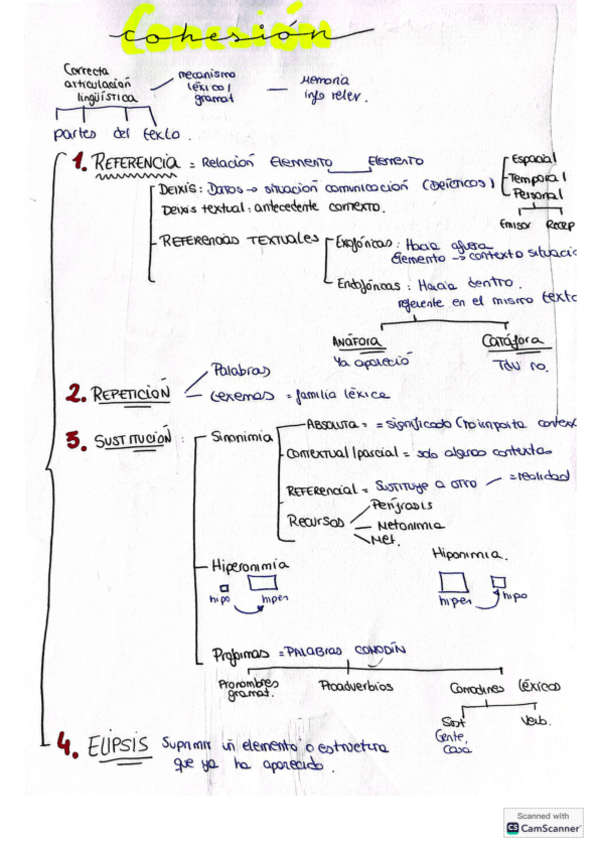 Cohesión
Correcta articulación lingüística
mecanismo léxico/gramat
Memoria info relev.
partes del texto.
1. REFERENCIA = Relación Elemento Elemento
DEIXIS: Datos → situación comunicación (Deícticos)
Espacial
Temporal
Personal
Emisor Recep
Deixis textual: antecedente contexto.
REFERENCIAS TEXTUALES
Exofóricas: Hacia afuera
Elemento → contexto situació
Endofóricas: Hacia dentro.
referente en el mismo texto
ANÁFORA
Ya apareció
CATÁFORA
Tdv no.
2. REPETICIÓN
Palabras
Lexemas = familia léxica
3. SUSTITUCIÓN:
Sinonimia
ABSOLUTA = = significado (no importa context
CONTEXTUAL/parcial = solo algunos contextos
REFERENCIAL = Sustituye a otro = realidad
RECURSOS
Perífrasis
Metonimia
Met.
Hiperonimia
hipo hiper
Hiponimia.
hiper hipo
Proformas = PALABRAS COMODÍN
Pronombres gramat.
Proadverbios
Comodines léxicos
Sust
Gente,
Cosa
Verb.
4. ELIPSIS Suprimir un elemento o estructura
que ya ha aparecido.
Scanned with
CS CamScanner